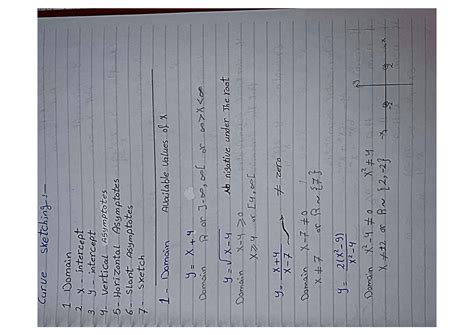 Curve sketching:-
1 Domain
2 x - intercept
3 y - intercept
4- Vertical Asymptotes
5- Horizontal Asymptotes
6- Slant Asymptotes
7- sketch
1 - Domain Available values of x
y = x + 4
Domain R or ]-∞,∞[ or ∞>x<∞
y = √x-4 No nigative under The root
Domain x-4 ≥0
x≥4 or [4,∞[
y = x+4 / x-7 ≠ zero
Domain x-7≠0
x≠7 or R~{7}
y = 2(x²-9) / x²-4
Domain x²-4≠0 x²≠4
x≠±2 or R~{2,-2}